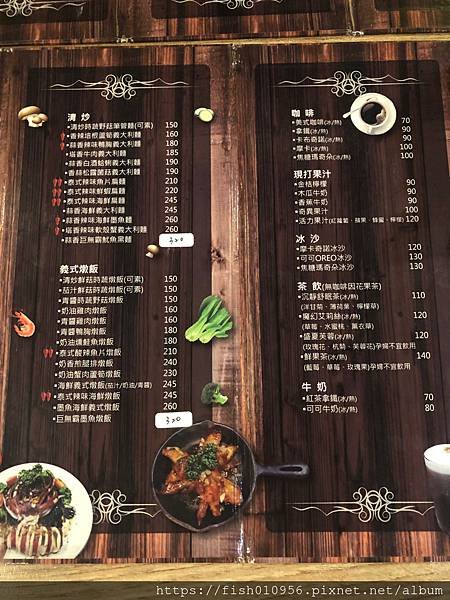 清炒
•清炒時蔬野菇筆管麵(可素) 150
•香辣培根蘆筍義大利麵 160
•蒜香辣味鴨胸義大利麵 180
•塔香牛肉義大利麵 185
•蒜香白酒蛤蜊義大利麵 190
•香蒜松露菌菇義大利麵 190
•泰式辣味魚片扁麵 210
•泰式辣味鮮蝦扁麵 220
•泰式辣味海鮮扁麵 245
•蒜香海鮮義大利麵 245
•蒜香辣味海鮮墨魚麵 260
•塔香辣味軟殼蟹義大利麵 260
•蒜香巨無霸魷魚黑麵 320
義式燉飯
•清炒鮮菇時蔬燉飯(可素) 150
•茄汁鮮菇時蔬燉飯(可素) 150
•青醬時蔬野菇燉飯 150
•奶油雞肉燉飯 160
•青醬雞肉燉飯 160
•青醬鴨胸燉飯 180
•奶油燻鮭魚燉飯 180
•泰式酸辣魚片燉飯 210
•奶香煎腿排燉飯 230
•奶油蟹肉蘆筍燉飯 230
•海鮮義式燉飯(茄汁/奶油/青醬) 245
•泰式辣味海鮮燉飯 245
•墨魚海鮮義式燉飯 260
•巨無霸墨魚燉飯 320
咖啡
•美式咖啡(冰/熱) 70
•拿鐵(冰/熱) 90
•卡布奇諾(冰/熱) 90
•摩卡(冰/熱) 100
•焦糖瑪奇朵(冰/熱) 100
現打果汁
•金桔檸檬 90
•木瓜牛奶 90
•香蕉牛奶 90
•奇異果汁 100
•活力果汁(紅蘿蔔、蘋果、蜂蜜、檸檬) 120
冰沙
•摩卡奇諾冰沙 120
•可可OREO冰沙 130
•焦糖瑪奇朵冰沙 130
茶飲(無咖啡因花果茶)
•沉靜舒眠茶(冰/熱) 110
(洋甘菊、薄荷葉、檸檬草)
•魔幻艾莉絲(冰/熱) 120
(草莓、水蜜桃、薰衣草)
•盛夏芙蓉(冰/熱) 120
(玫瑰花、杭菊、芙蓉花)孕婦不宜飲用
•鮮果茶(冰/熱) 140
(藍莓、草莓、玫瑰果)孕婦不宜飲用
牛奶
•紅茶拿鐵(冰/熱) 70
•可可牛奶(冰/熱) 80
https://fish010956.pixnet.net/album